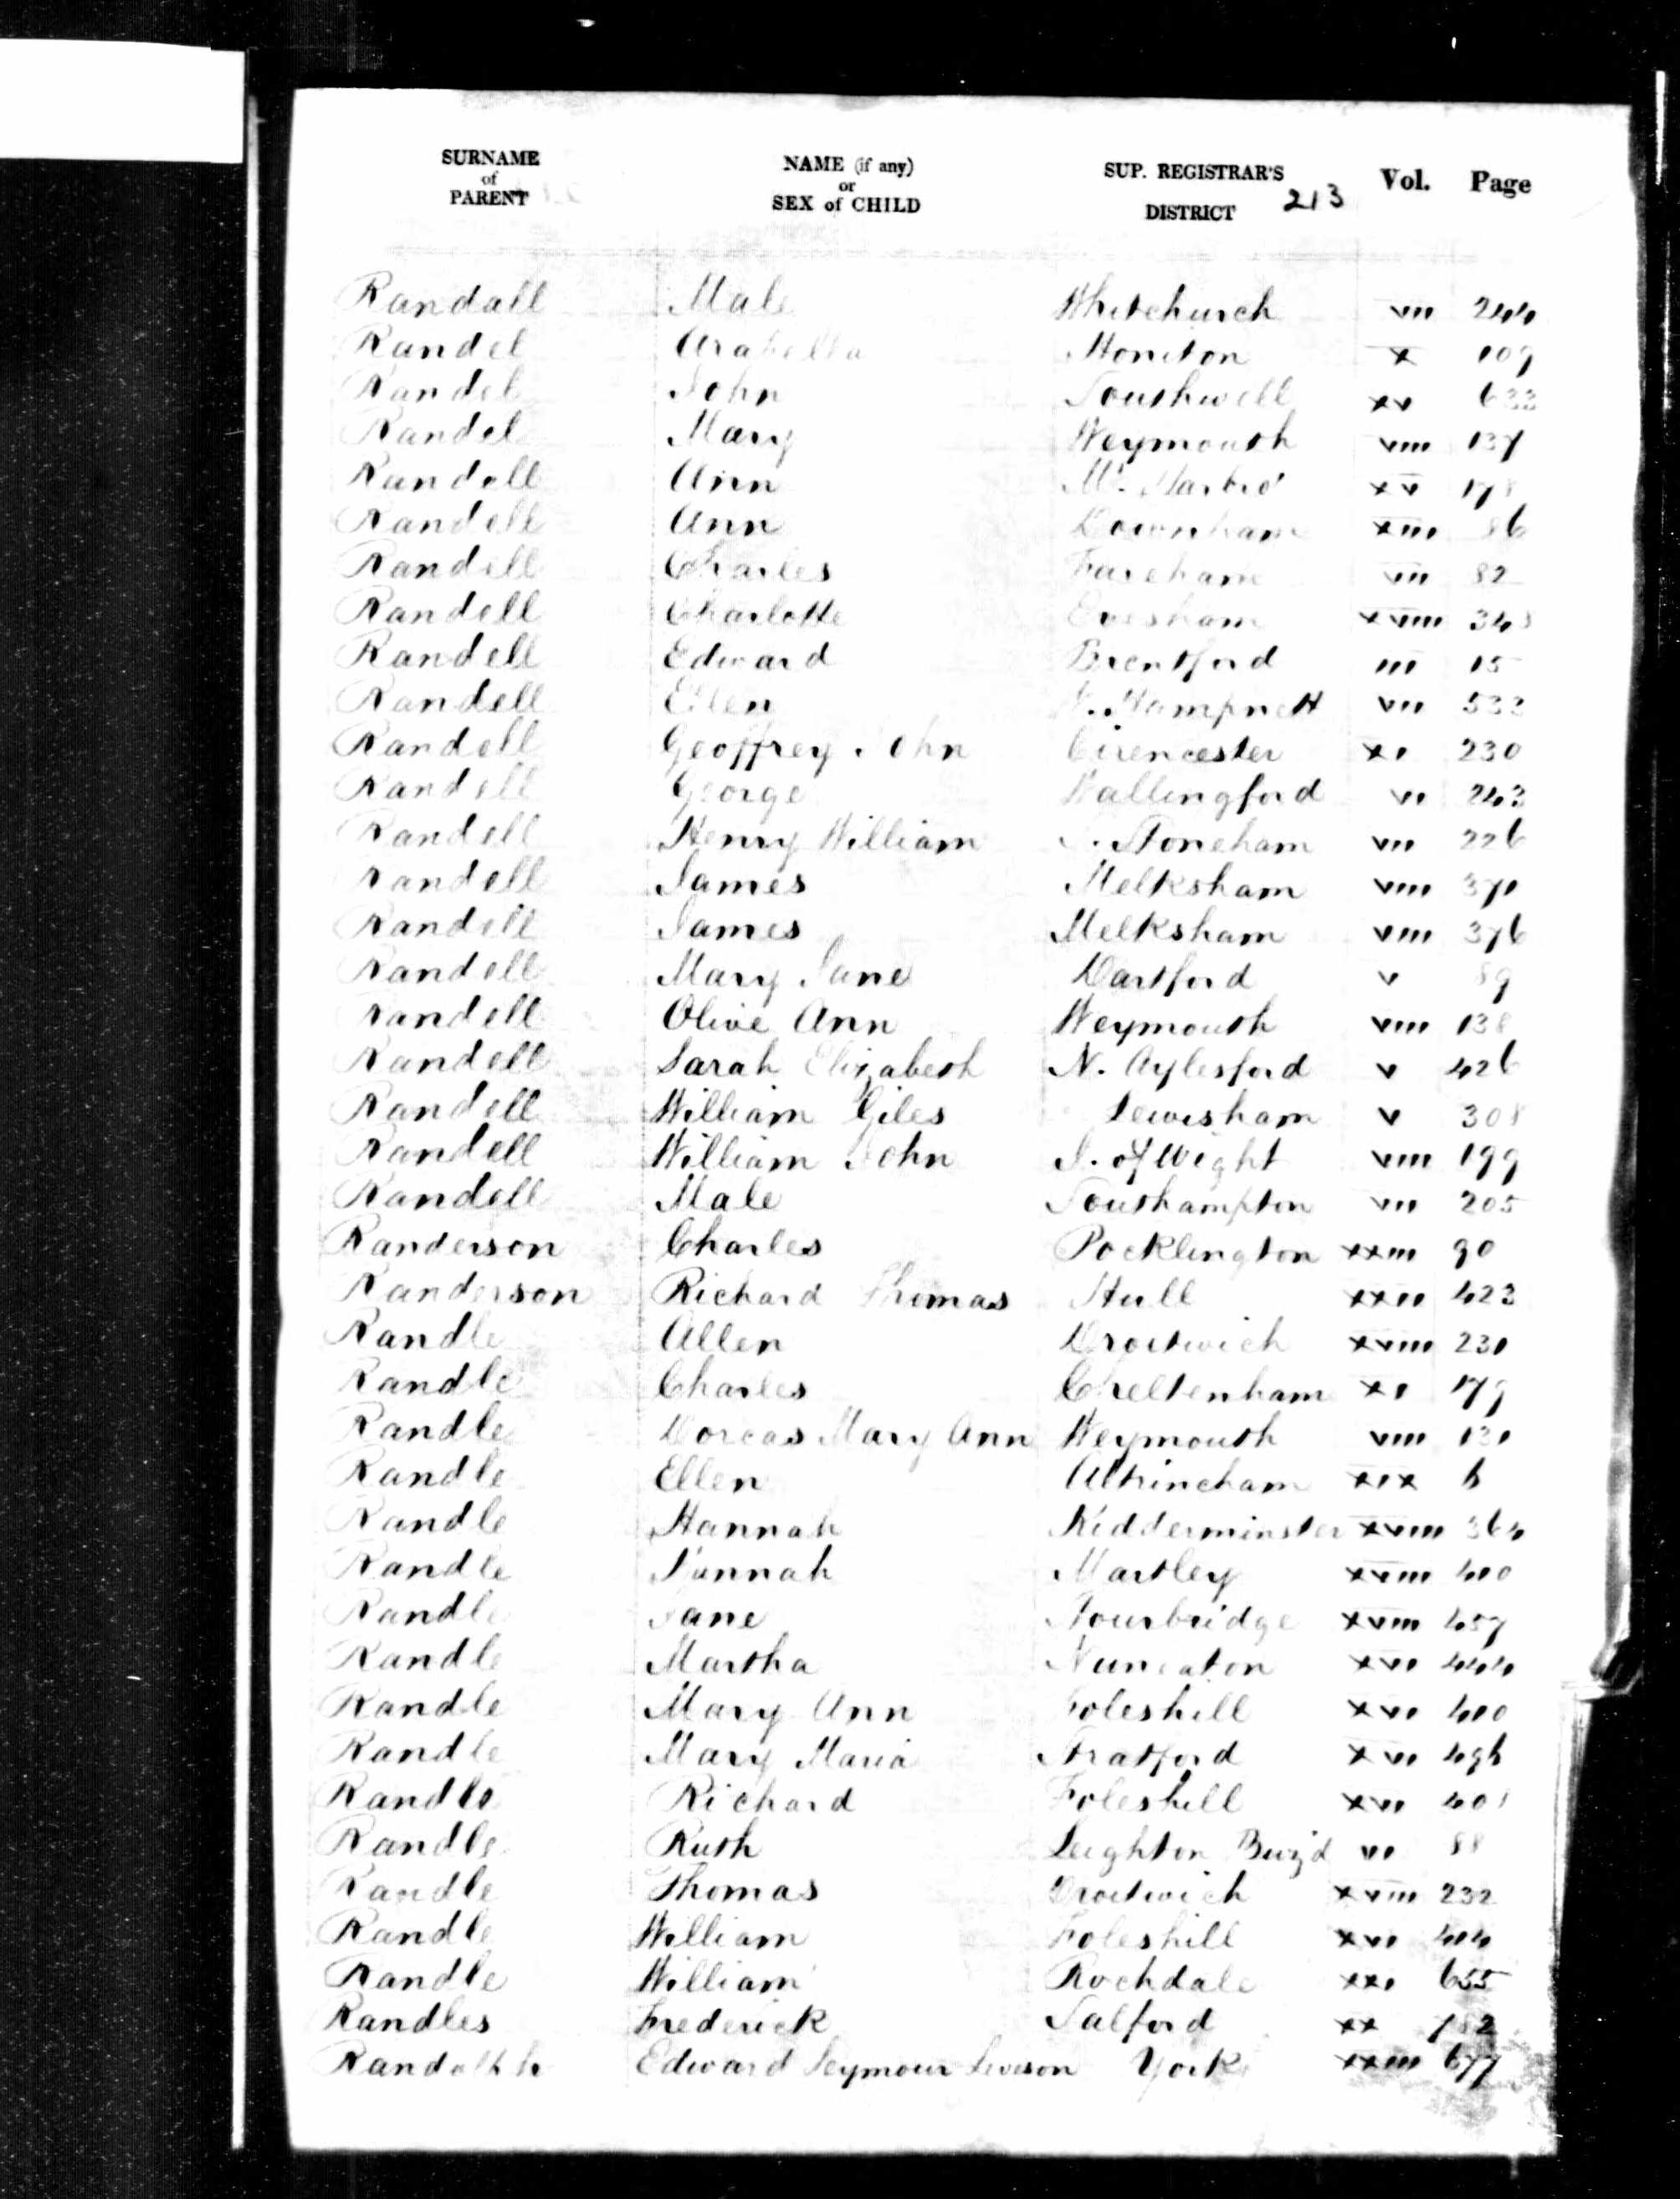 SURNAME of PARENT NAME (if any) or SEX of CHILD SUP. REGISTRAR'S DISTRICT 213 Vol. Page
Randall Male Whitchurch VII 244
Randel Arabella Honiton X 109
Randel John Southwell XV 633
Randel Mary Weymouth VIII 137
Randell Ann Mt. Harbro' XV 178
Randell Ann Downham XIII 86
Randell Charles Fareham VII 82
Randell Charlotte Evesham XVIII 348
Randell Edward Brentford III 15
Randell Ellen W. Hampnett VII 533
Randell Geoffrey John Cirencester XI 230
Randell George Wallingford VI 243
Randell Henry William S. Stoneham VII 226
Randell James Melksham VIII 371
Randell James Melksham VIII 376
Randell Mary Jane Dartford V 89
Randell Olive Ann Weymouth VIII 138
Randell Sarah Elizabeth N. Aylesford V 426
Randell William Giles Lewisham V 308
Randell William John I. of Wight VIII 199
Randell Male Southampton VII 205
Randerson Charles Pocklington XXIII 90
Randerson Richard Thomas Hull XXII 423
Randle Allen Droitwich XVIII 231
Randle Charles Cheltenham XI 179
Randle Dorcas Mary Ann Weymouth VIII 131
Randle Ellen Altrincham XIX 6
Randle Hannah Kidderminster XVIII 364
Randle Hannah Martley XVIII 410
Randle Jane Stourbridge XVIII 457
Randle Martha Nuneaton XVI 444
Randle Mary Ann Foleshill XVI 410
Randle Mary Maria Stratford XVI 496
Randle Richard Foleshill XVI
Randle Ruth Leighton Buzd VI 88
Randle Thomas Droitwich XVIII 232
Randle William Foleshill XVI 404
Randle William Rochdale XXI 655
Randles Frederick Salford XX 782
Randolph Edward Seymour Leveson York XXIII 677